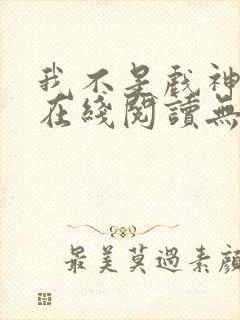 我不是戲神
在綫閱讀無
最美莫過素顏